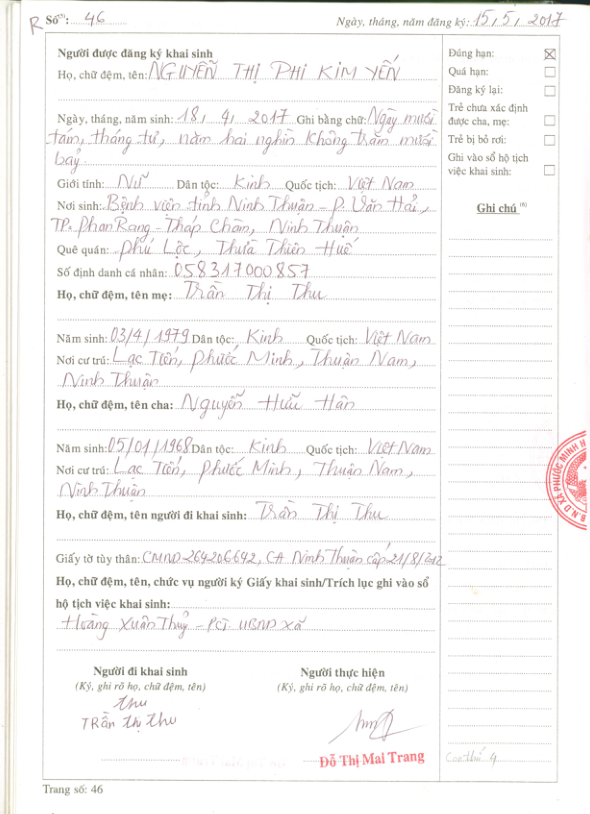 R Số(5): 46 Ngày, tháng, năm đăng ký: 15, 5, 2017
Người được đăng ký khai sinh
Họ, chữ đệm, tên: NGUYỄN THỊ PHI KIM YẾN
Ngày, tháng, năm sinh: 18, 4, 2017 Ghi bằng chữ: Ngày mười
tám, tháng tư, năm hai nghìn không trăm mười
bảy
Giới tính: Nữ Dân tộc: Kinh Quốc tịch: Việt Nam
Nơi sinh: Bệnh viện tỉnh Ninh Thuận - P. Văn Hải,
TP. Phan Rang - Tháp Chàm, Ninh Thuận
Quê quán: Phú Lộc, Thừa Thiên Huế
Số định danh cá nhân: 058317000857
Họ, chữ đệm, tên mẹ: Trần Thị Thu
Năm sinh: 03/4/1979 Dân tộc: Kinh Quốc tịch: Việt Nam
Nơi cư trú: Lạc Tiến, Phước Minh, Thuận Nam,
Ninh Thuận
Họ, chữ đệm, tên cha: Nguyễn Hữu Hân
Năm sinh: 05/01/1968 Dân tộc: Kinh Quốc tịch: Việt Nam
Nơi cư trú: Lạc Tiến, Phước Minh, Thuận Nam,
Ninh Thuận
Họ, chữ đệm, tên người đi khai sinh: Trần Thị Thu
Giấy tờ tùy thân: CMND 264206642, CA Ninh Thuận cấp 21/8/2012
Họ, chữ đệm, tên, chức vụ người ký Giấy khai sinh/Trích lục ghi vào sổ
hộ tịch việc khai sinh:
Hoàng Xuân Thủy - PCT. UBND xã
Người đi khai sinh
(Ký, ghi rõ họ, chữ đệm, tên)
thu
Trần thị thu
Người thực hiện
(Ký, ghi rõ họ, chữ đệm, tên)
Đỗ Thị Mai Trang
Đúng hạn: ☒
Quá hạn: ☐
Đăng ký lại: ☐
Trẻ chưa xác định
được cha, mẹ: ☐
Trẻ bị bỏ rơi: ☐
Ghi vào sổ hộ tịch
việc khai sinh: ☐
Ghi chú (6)
Con thứ 4
B.N.D XÃ PHƯỚC MINH H
Trang số: 46